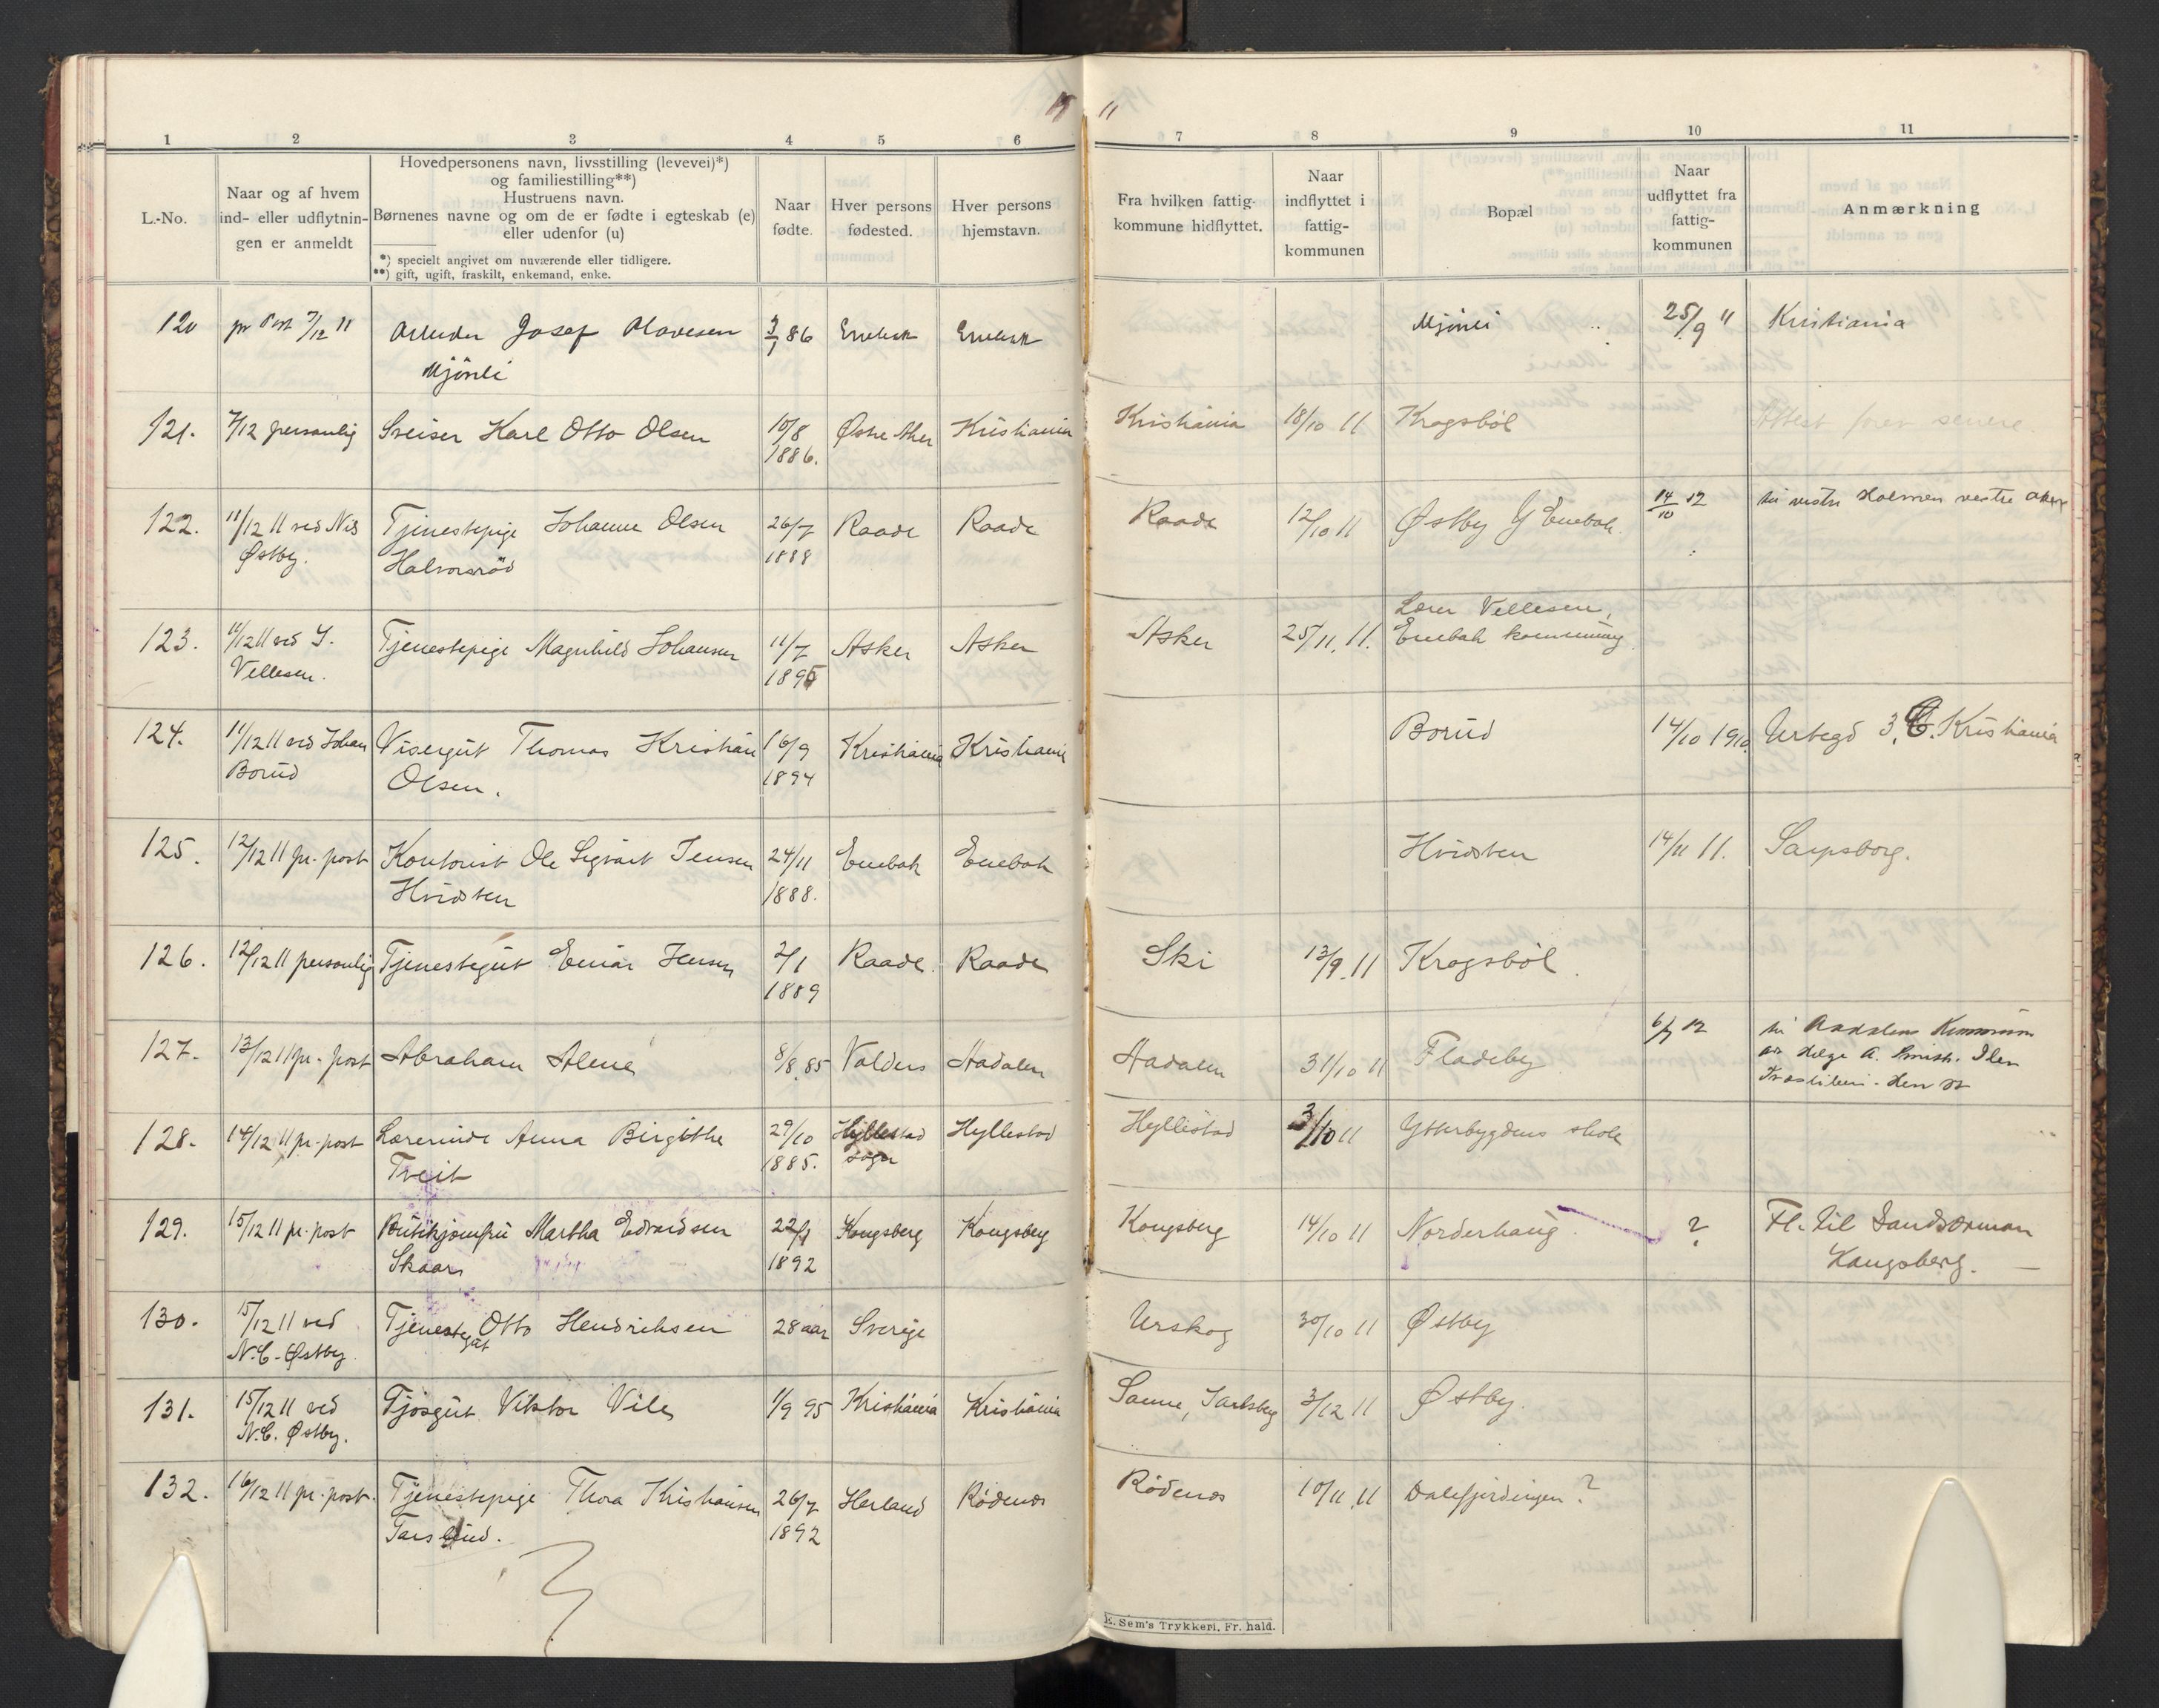 19 11
1 2 3 4 5 6 7 8 9 10 11
L.-No.
Naar og af hvem
ind- eller udflytnin-
gen er anmeldt
Hovedpersonens navn, livsstilling (levevei)*)
og familiestilling**)
Hustruens navn.
Børnenes navne og om de er fødte i egteskab (e)
eller udenfor (u)
*) specielt angivet om nuværende eller tidligere.
**) gift, ugift, fraskilt, enkemand, enke.
Naar
fødte.
Hver persons
fødested.
Hver persons
hjemstavn.
Fra hvilken fattig-
kommune hidflyttet.
Naar
indflyttet i
fattig-
kommunen
Bopæl
Naar
udflyttet fra
fattig-
kommunen
Anmærkning
120 pr Post 7/12 11 Arbeider Josef Olavesen 3/1 86 Enebak Enebak Mjönli 25/9 11 Kristiania
Mjönli
121. 7/12 personlig Sveiser Karl Otto Olsen 10/8 Østre Aker Kristiania Kristiania 18/10 11 Krogsböl Attest senere.
1886.
122. 11/12 11 ved Nils Tjenestepige Johanne Olsen 26/7 Raade Raade Raade 12/10 11 Østby Y Enebak 14/10 12 til vestre Holmen vestre Aker
Østby. Halvorsröd 1888
123. 11/12 11 ved J. Tjenestepige Magnhild Johansen 11/7 Asker Asker Asker 25/11. 11. Lærer Vellesen,
Vellesen. 1895 Enebak
124. 11/12 11 ved Johan Visergut Thomas Kristian 16/9 Kristiania Kristiania Borud 14/10 1910. Urtegd 3, Kristiania
Borud Olsen. 1894
125. 12/12 11 pr. post Kontorist Ole Sigvart Jensen 24/11 Enebak Enebak Hvidsten 14/11 11. Sarpsborg.
Hvidsten 1888.
126. 12/12 11 personlig Tjenestegut Einar Jensen 2/1 Raade. Raade Ski 13/9. 11 Krogsböl.
1889
127. 13/12 11 pr. post Abraham Alme 8/8. 85 Valders Aadalen Aadalen 31/10 11 Fladeby 6/7 12 til Aadalen
adr Helge A.
128. 14/12 11 pr. post Lærerinde Anna Birgithe 29/10 Hyllestad Hyllestad Hyllestad 3/10 11 Ytterbygdens skole
Tveit 1885. sogn
129. 15/12 11 pr. post Butikjomfru Martha Edvardsen 22/1 Kongsberg Kongsberg Kongsberg 14/10 11 Norderhaug ? Fl. til Sandsværman
Skaar 1892 Kongsberg.
130. 15/12 11 ved Tjenestegut Otto Hendriksen 28 aar Sverige Urskog 30/10 11 Østby
N.C. Østby
131. 15/12 11 ved Fjosgut Viktor Vile 1/9 95 Kristiania Kristiania Sanne, Jarlsberg 3/12 11 Østby.
N.C. Østby.
132. 16/12 11 pr. post. Tjenestepige Thora Kristiansen 26/7 Herland Rödenes Rödenes 10/11. 11 Dalefjerdingen?
1892
E. Sem's Trykkeri, Fr. hald.